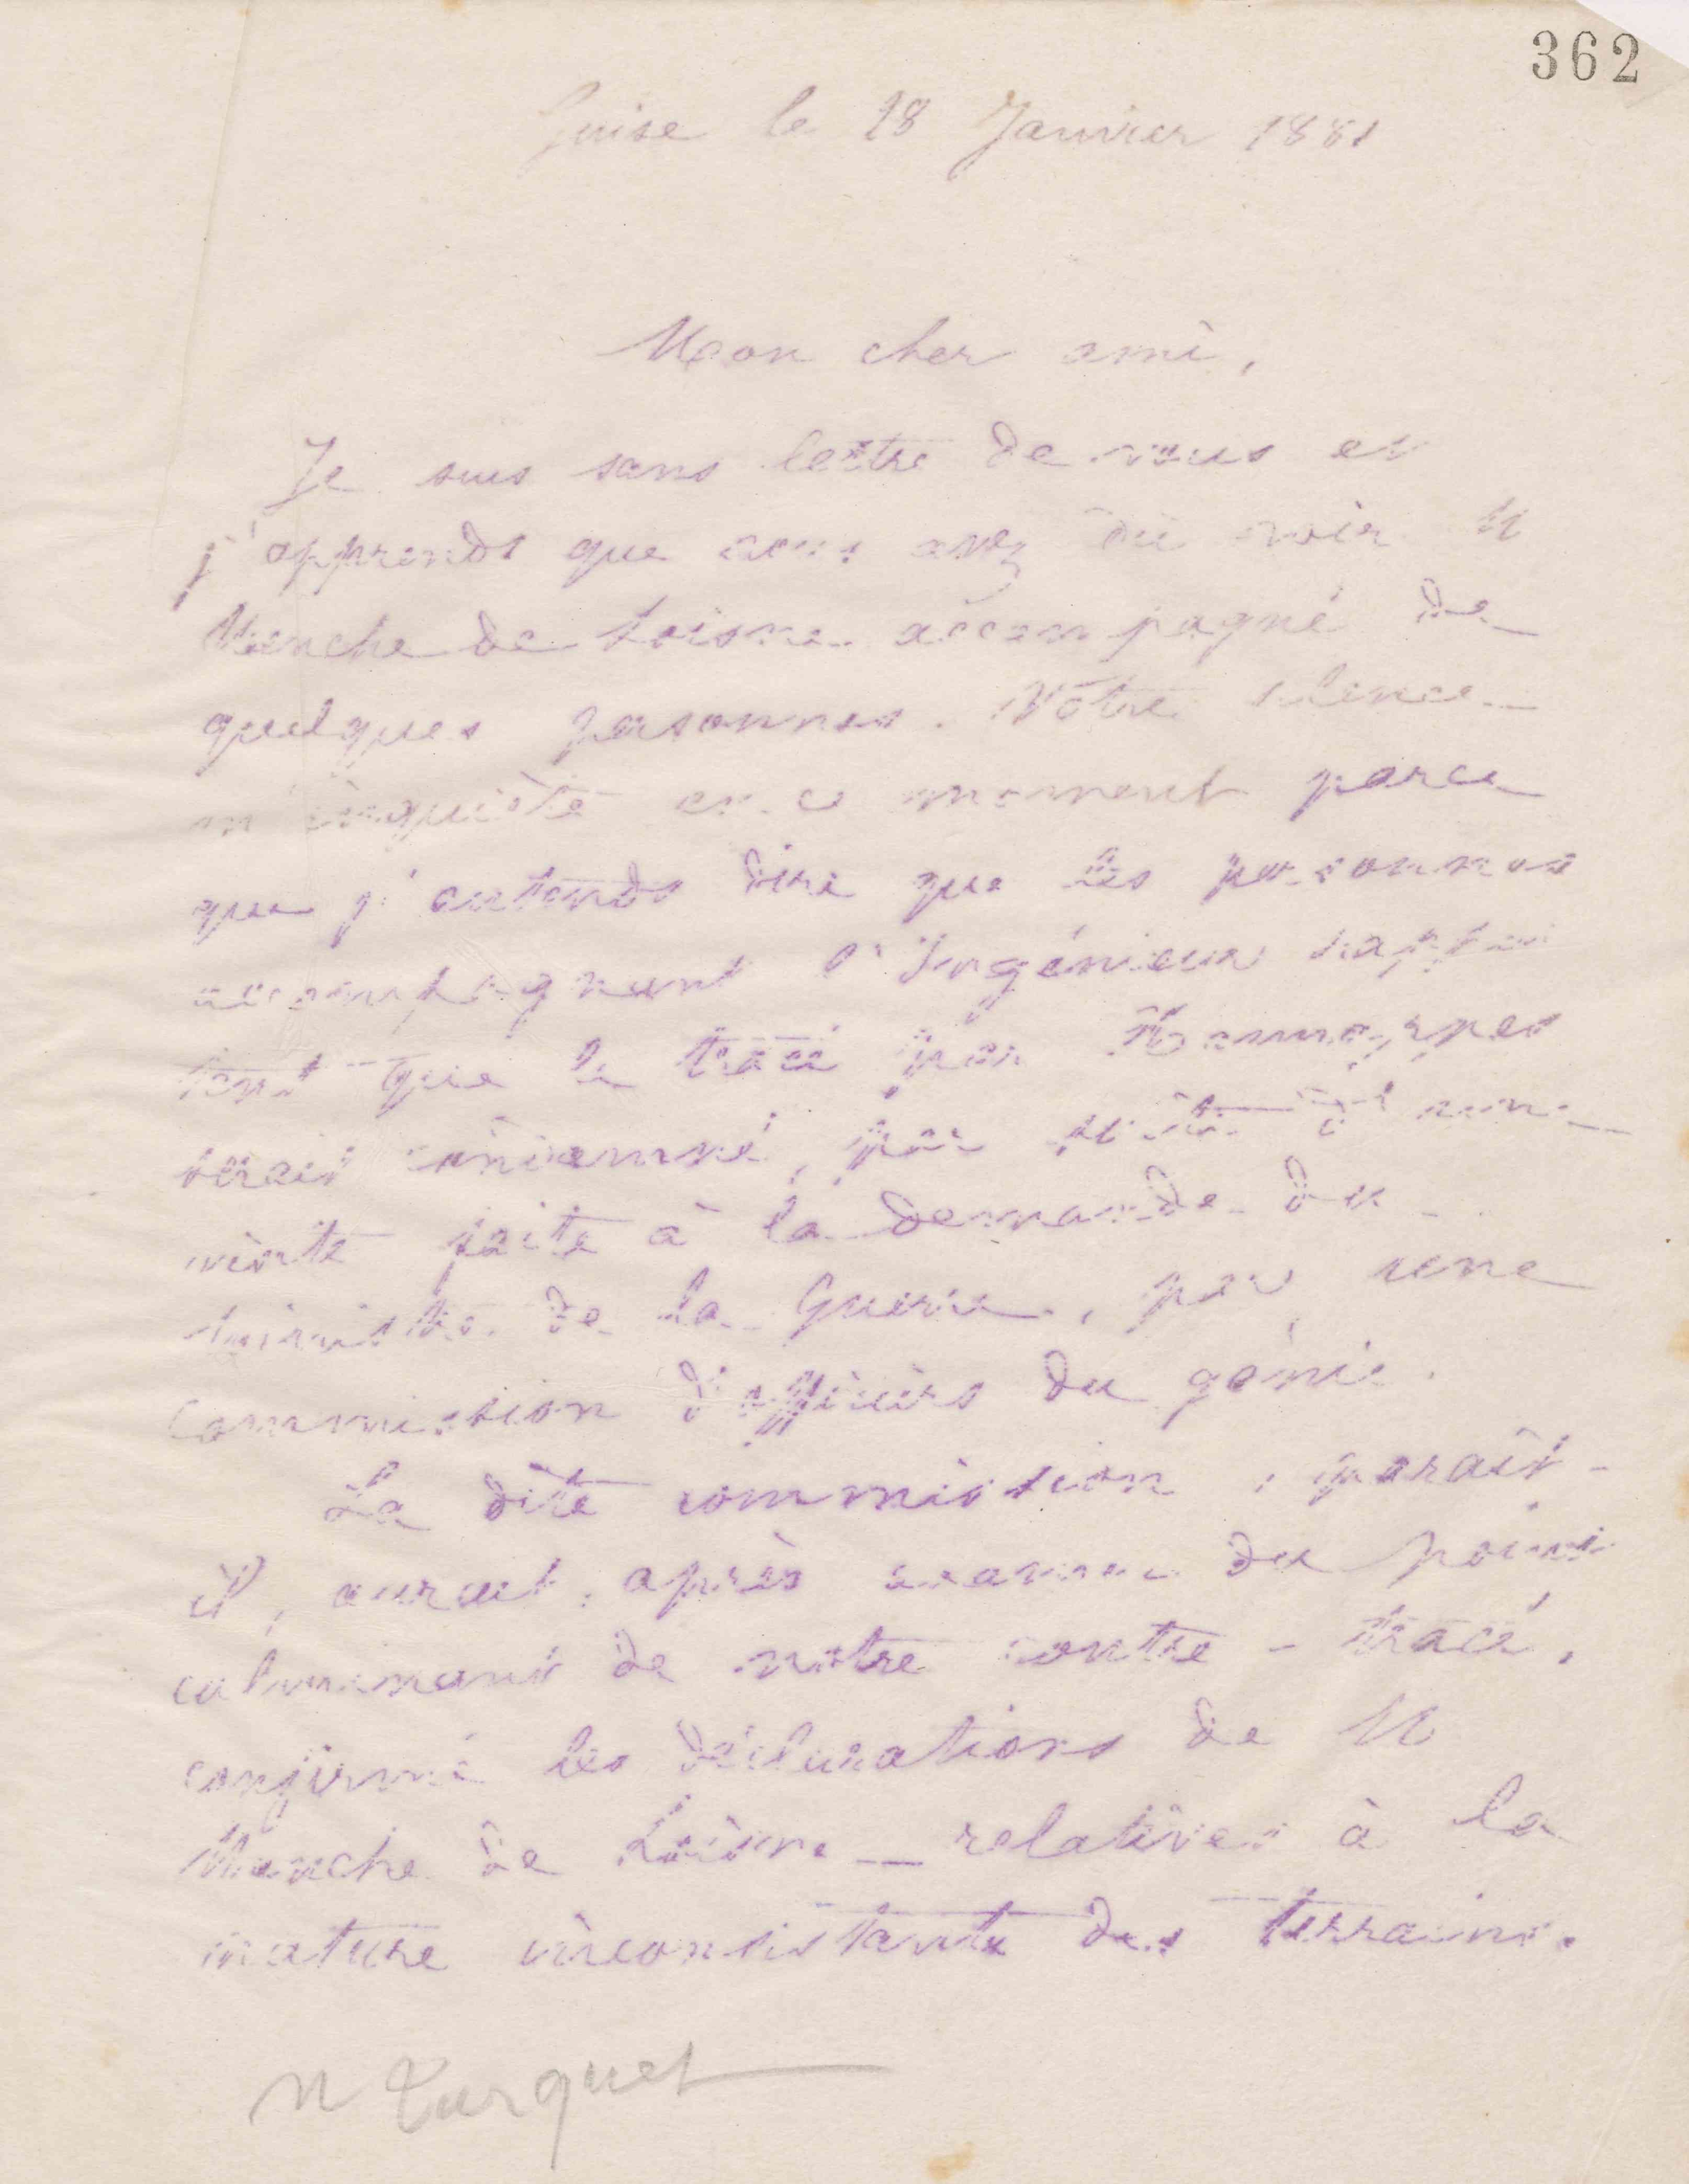 362
Guise le 18 Janvier 1881
Mon cher ami,
Je suis sans lettre de vous et
j'apprends que vous avez dû voir M
Menche de Loisne accompagné de
quelques personnes. Votre silence
m'inquiète en ce moment parce
que j'entends dire que les personnes
accompagnant l'Ingénieur
que le tracé par
serait condamné, par suite d'une
visite faite à la demande du
Ministre de la Guerre, par une
commission d'officiers du génie.
La dite commission, paraît-
il, aurait, après examen du point
culminant de notre contre-tracé,
confirmé les déclarations de M
Menche de Loisne relatives à la
nature inconsistante des terrains.
M Turquet